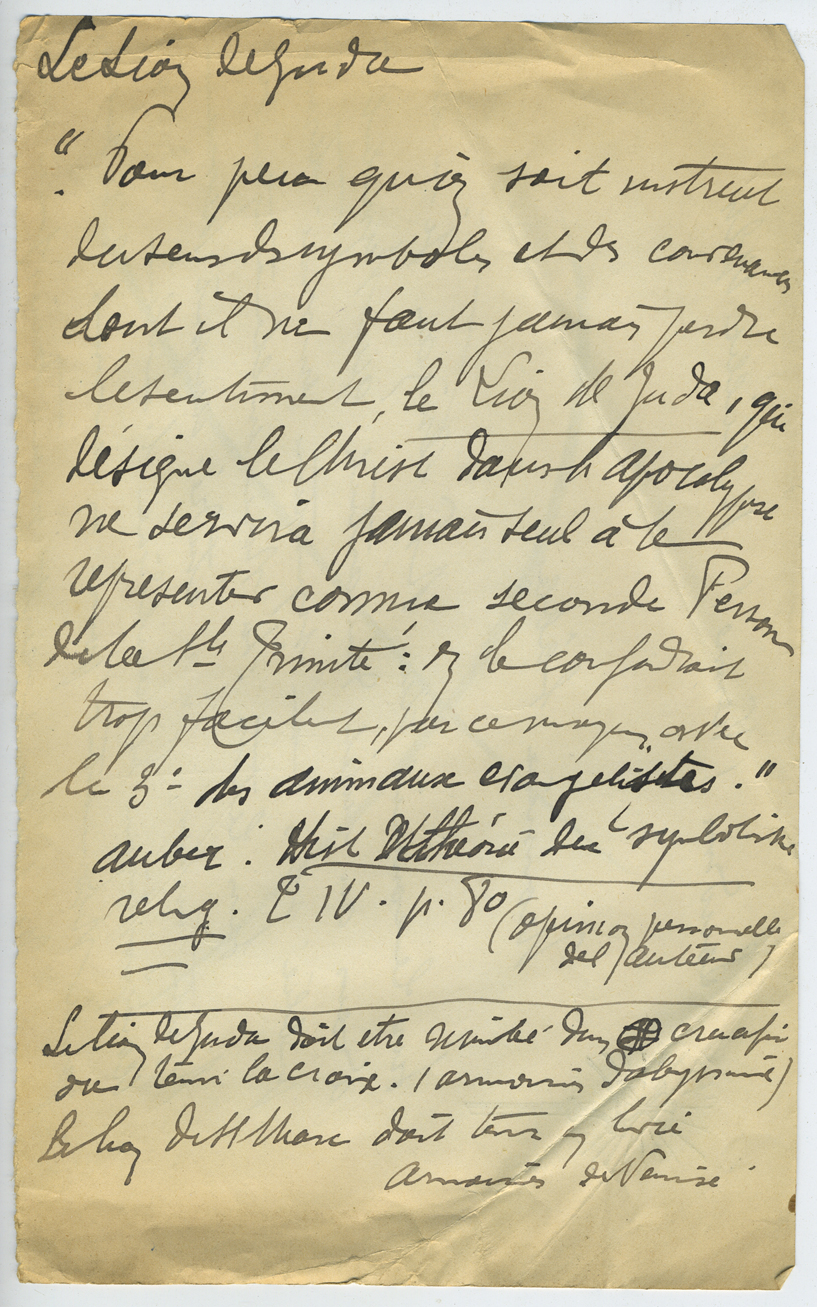 Le Lion de Juda
"Pour peu qu'on soit instruit
du sens des symboles et des convenances
dont il ne faut jamais perdre
le sentiment, le Lion de Juda, qui
désigne le Christ dans l'apocalypse
ne servira jamais seul à le
représenter comme seconde Personne
de la Ste Trinité : on le confondrait
trop facilement, par ce moyen, avec
le 3e des animaux évangélistes."
auber : Hist et théorie du symbolisme
relig. T IV. p. 80 (opinion personnelle
de l'auteur)
Le Lion de Juda doit être nimbé du crucifix
ou tenir la croix. (armoiries d'abyssinie)
Le lion de St Marc doit tenir un livre
armoiries de Venise